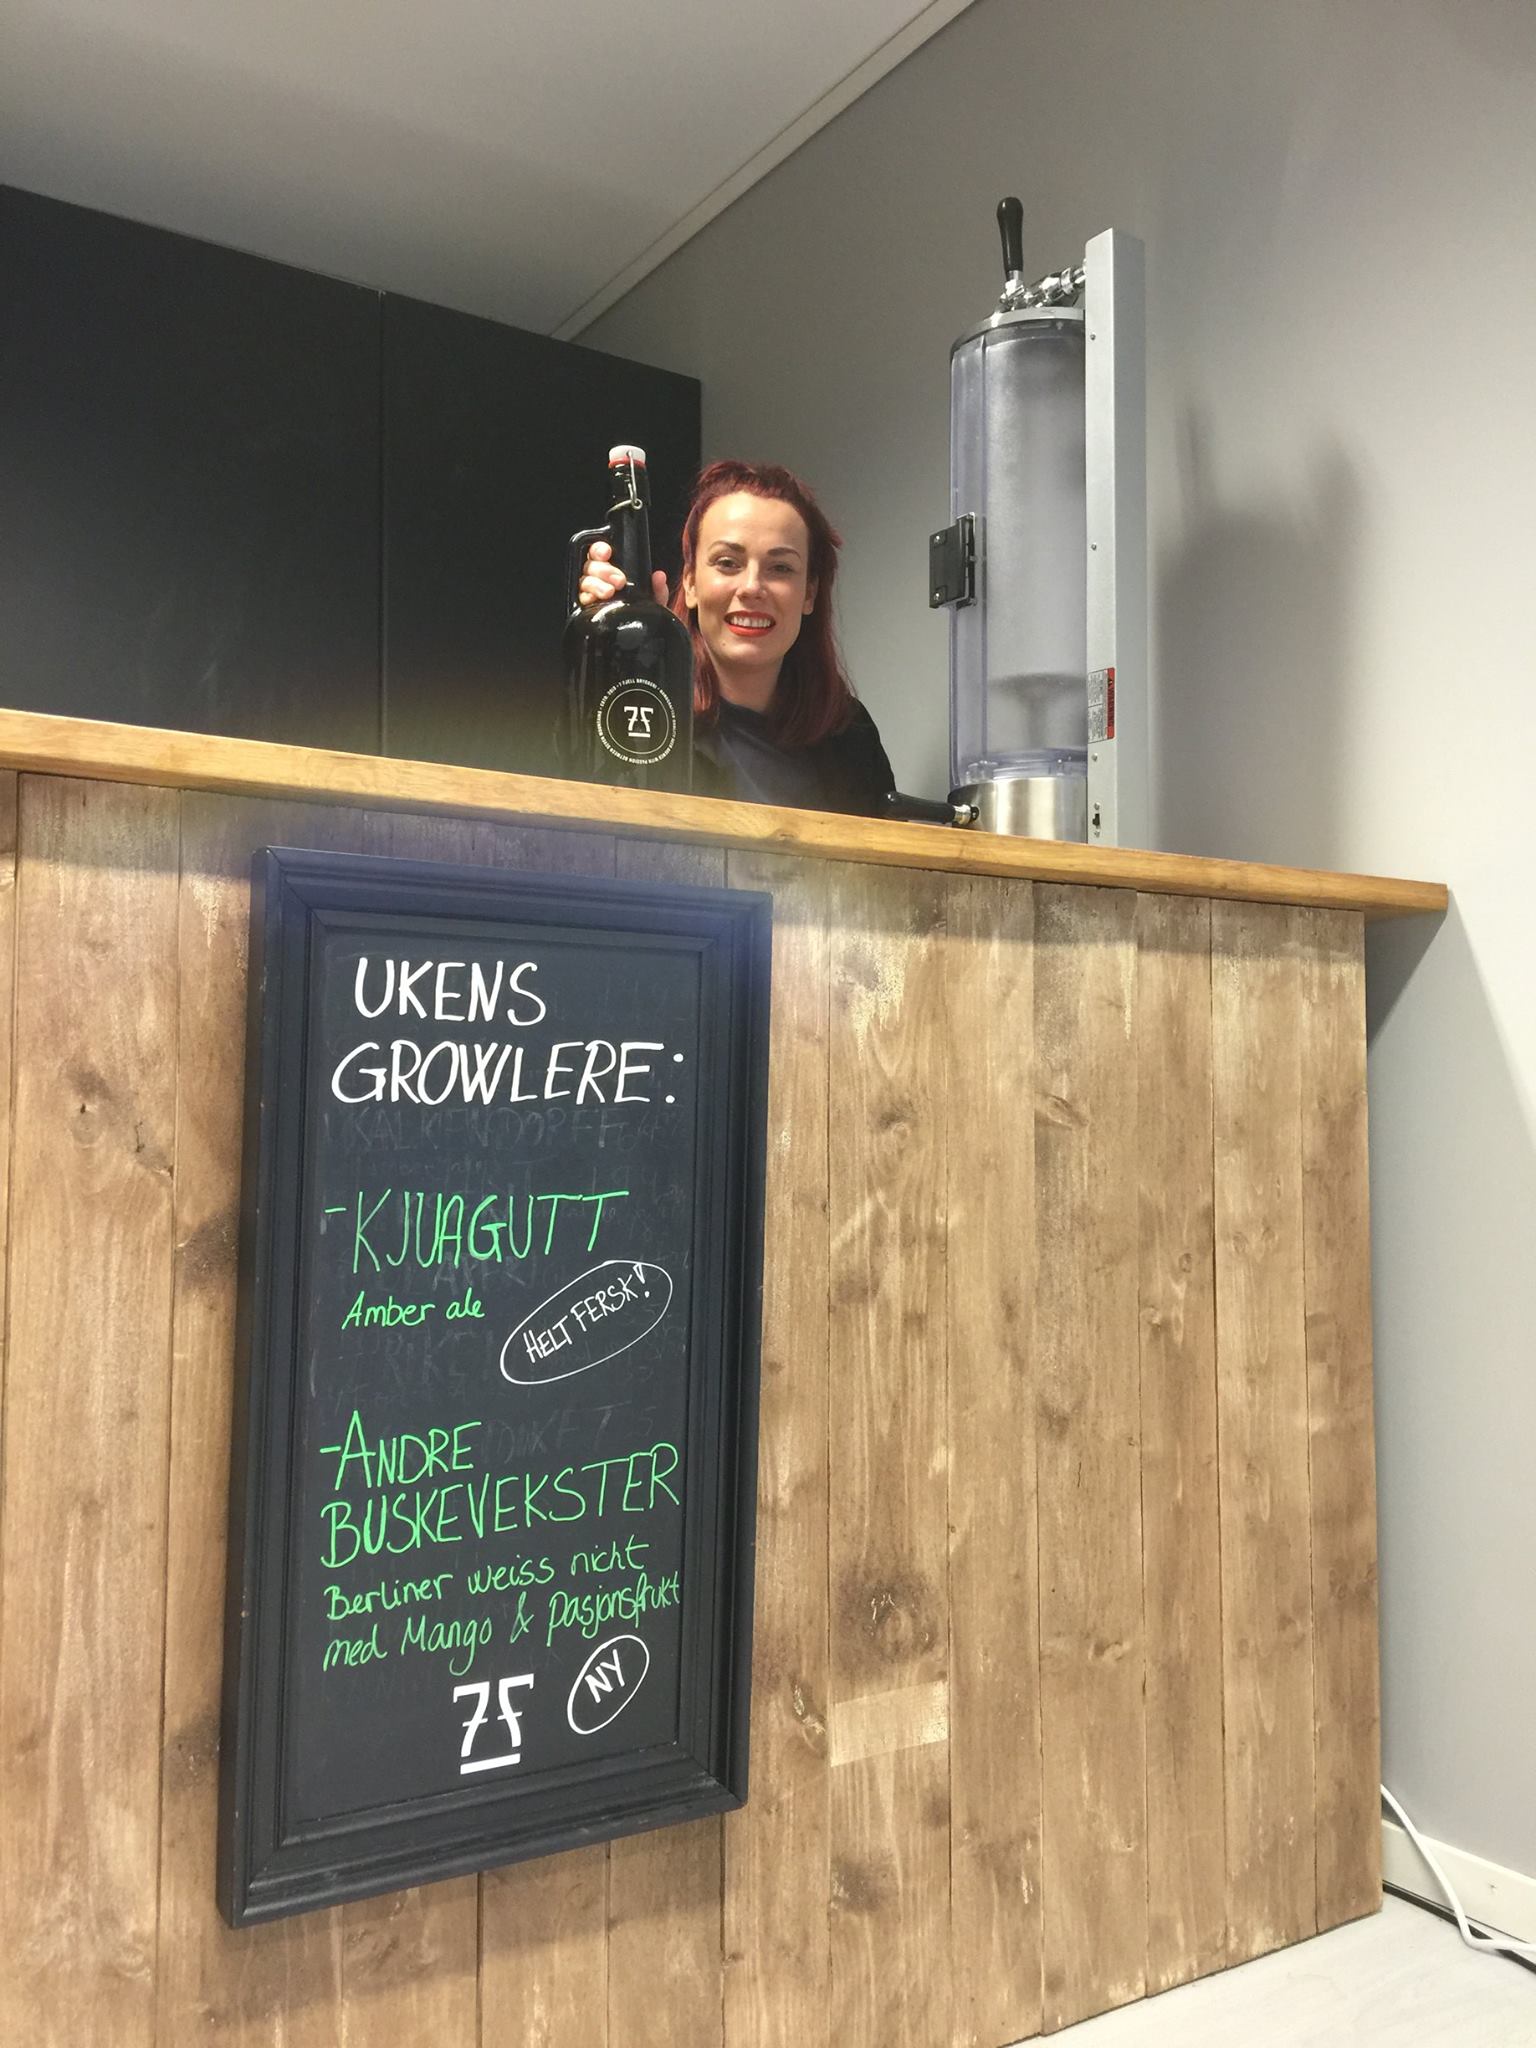 7F
UKENS
GROWLERE:
-KJUAGUTT
Amber ale
HELT FERSK!
-ANDRE
BUSKEVEKSTER
Berliner weiss nicht
med Mango & Pasjonsfrukt
7F
NY